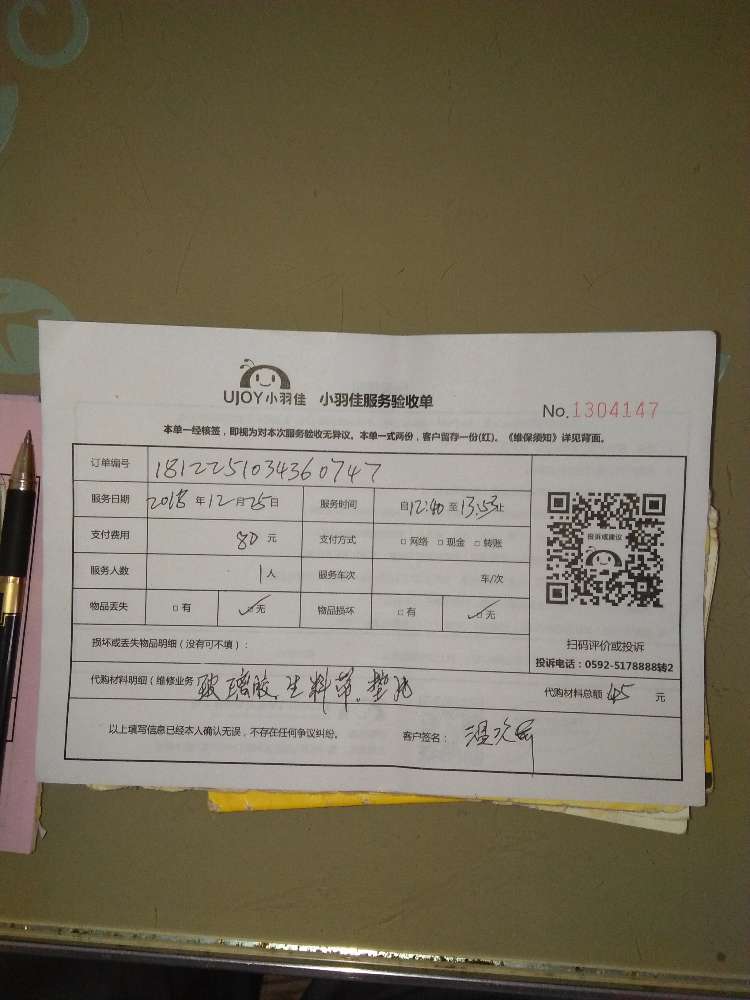 UJOY小羽佳 小羽佳服务验收单
No.1304147
本单一经核签，即视为对本次服务验收无异议。本单一式两份，客户留存一份(红)。《维保须知》详见背面。
订单编号 1812251034360747
服务日期 2018年12月25日 服务时间 自12:40至13:53止
支付费用 80元 支付方式 □网络 □现金 □转账
投诉或建议
服务人数 1人 服务车次 车/次
物品丢失 □有 ✓□无 物品损坏 □有 ✓□无
扫码评价或投诉
损坏或丢失物品明细（没有可不填）：
投诉电话：0592-5178888转2
代购材料明细（维修业务 玻璃胶.生料带.垫片 代购材料总额 45 元
以上填写信息已经本人确认无误，不存在任何争议纠纷。 客户签名：